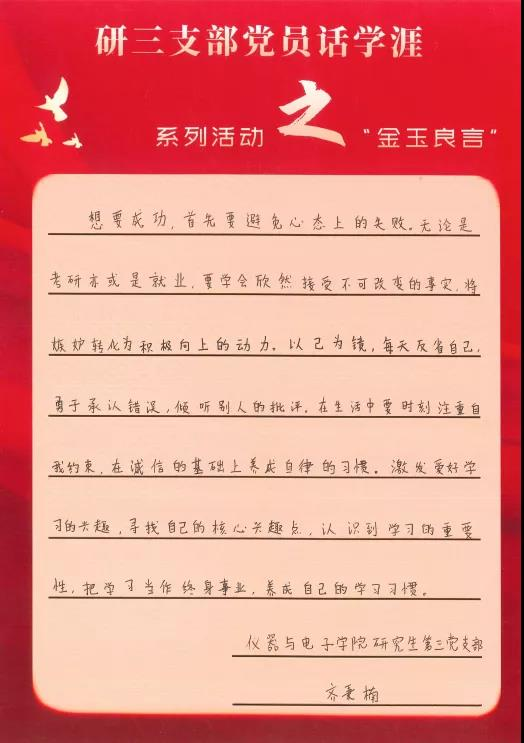 研三支部党员话学涯
系列活动之“金玉良言”
想要成功,首先要避免心态上的失败。无论是
考研亦或是就业,要学会欣然接受不可改变的事实,将
嫉妒转化为积极向上的动力。以己为镜,每天反省自己,
勇于承认错误,倾听别人的批评。在生活中要时刻注重自
我约束,在诚信的基础上养成自律的习惯。激发爱好学
习的兴趣,寻找自己的核心兴趣点,认识到学习的重要
性,把学习当作终身事业,养成自己的学习习惯。
仪器与电子学院研究生第三党支部
齐秉楠